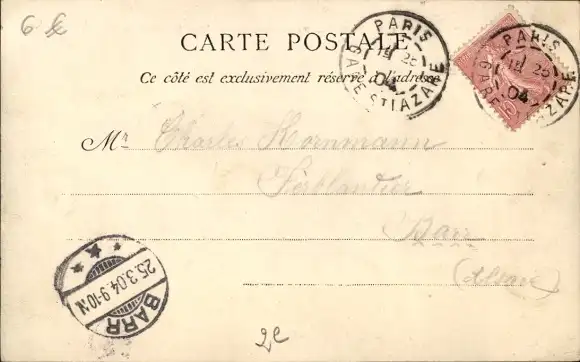 6 €
CARTE POSTALE
Ce côté est exclusivement réservé à l'adresse
PARIS
25
04
GARE ST LAZARE
PARIS
25
04
GARE ST LAZARE
Mr Charles Kornmann
Ferblantier
Barr
(Alsace)
25.3.04.9-10N
BARR
2€